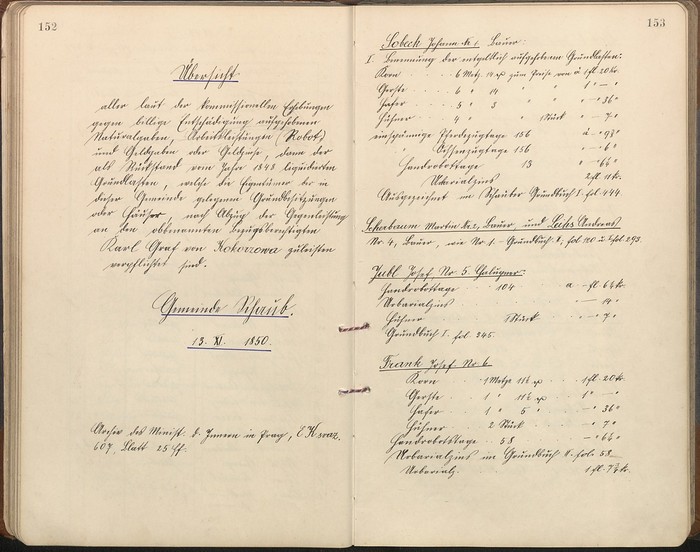 152
Übersicht
aller laut der kommissionellen Erhebungen
gegen billige Entschädigung aufgehobenen
Naturalgaben, Arbeitsleistungen (Robot)
und Geldgaben oder Geldzinse, dann der
als Rückstand vom Jahr 1848 liquidierten
Grundlasten, welche die Eigentümer der in
dieser Gemeinde gelegenen Grundbesitzungen
oder Häuser, nach Abzug der Gegenleistung
an den obbenannten Bezugsberechtigten
Karl Graf von Kokorzowa zu leisten
verpflichtet sind.
Gemeinde Schaub.
13. XI. 1850.
Archiv des Minist. d. Innern in Prag,
607, Blatt 25 ff.
153
Sobeck Johann Nr 1. Bauer:
I. Benennung der entgeltlich aufgehobenen Grundlasten:
Korn 6 Metz zum Preise von à 1 fl 20 kr.
Gerste 6 " 14 " " " 1 " — "
Hafer 5 " 3 " " " — " 36 "
Hühner 4 " " 1 Stück — " 7 "
einspännige Pferdezugtage 156
" Ochsenzugtage 156
Handrobottage 13
Urbarialzins 2 fl 11 kr.
Ausgezeichnet im Schauber Grundbuch I. fol. 444.
Scherbaum Martin Nr. 2, Bauer, und Andreas
Nr. 4, Bauer, wie Nr. 1. Grundbuch
Josef Nr 5.
Handrobottage 104 à — fl 6 kr.
Urbarialzins — 14 "
Hühner 1 Stück — " 7 "
Grundbuch I. fol. 245.
Frank Josef. Nr. 6
Korn 1 Metz 1 fl. 20 kr.
Gerste 1 " 1 " — "
Hafer 1 " 5 " — " 36 "
Hühner 2 Stück — " 7 "
Handrobottage 58
Urbarialzins im Grundbuch fol. 58
Urbarialz. 1 fl. kr.